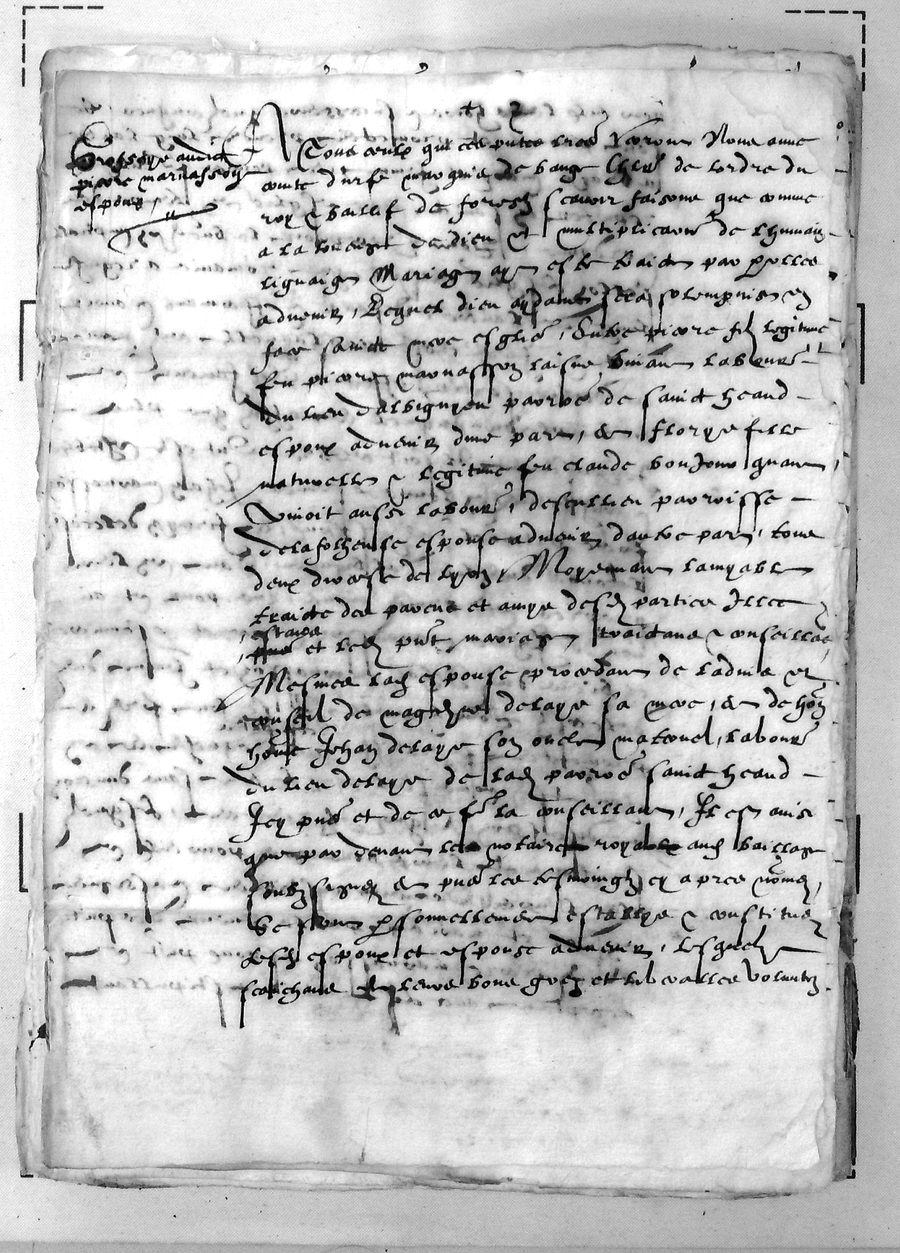 Grossoyé audict
pierre marnasson
espoux
A Tous ceulx qui ces pntes lres verront Nous anne
conte durfé marquis de bauge chlr de lordre du
roy & baillif de forestz scavoir faisons que comme
a la louange de dieu et multiplicaon de lhumain
lignaige Mariage aye esté traicté par parolles
advenir, Lequel dieu aydant sera solempnisé en
face saincte mere esglie, Entre pierre filz legitime
feu pierre marnasson laisne vivant laboureur
du lieu dalbignyeu parroe de sainct heand
espoux advenir dune part, et florye fille
naturelle & legitime feu claude bonjour quant
vivoit aussi laboureur, desd lieu parroisse
de lafolhouse espouse advenir daultre part, tous
deux diocese de lyon, Moyennant lamyable
traicté des parens et amys desd parties Illec
estans
et led pnt mariage traictans & conseillans
Mesmes lad espouse procedant de ladvis et
conseil de delaye sa mere, et de hon
home Jehan delaye son oncle maternel, laboureur
du lieu delaye de lad parroe sainct heand
Icy pns et de ce fe la conseillant, Il est ainsi
que par devant les notaires royaulx aud bailliage
soubzsignez et pns les tesmoingz cy apres nomez,
Se sont personnellement establys & constituez
lesd espoux et espouse advenir, lesquelz
scaichans de leurs bons grez et liberalles voluntez